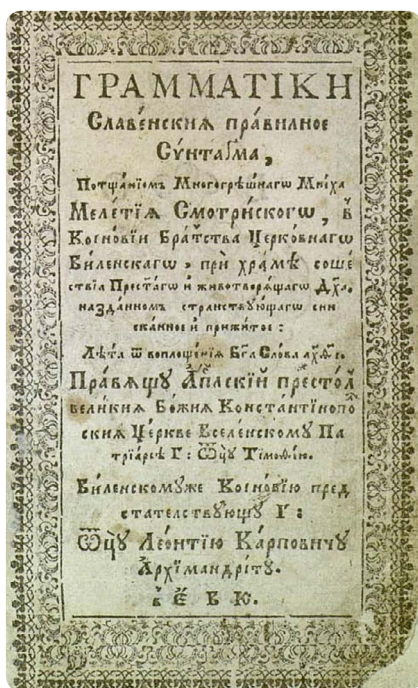 ГРАММАТІКИ
Славе́нскиѧ пра́вилное
Сѵ́нтаґма,
Потща́нїемъ Многогрѣ́шнагѡ Мни́ха
Меле́тїѧ Смотри́скогѡ, в̾
Коїно́вїи Бра́тства Церко́внагѡ
Ви́ленскагѡ, прѝ хра́мѣ соше
ствїѧ Прест҃а́гѡ и҆ животворѧ́щагѡ Дх҃а,
назда́нномъ стра́нствꙋющагѡ сни
сканное и҆ прижи́тое:
Лѣ́та ѿ воплоще́нїѧ Бг҃а Сло́ва
Пра́вѧщꙋ А҆пⷭ҇лскїй престо́лъ
вели́киѧ Бо́жїѧ Константїнопо
скиѧ Це́ркве Вселе́нскомꙋ Па
трїа́рсѣ Г: Ѿцꙋ Тїмоѳе́ю.
Ви́ленскомꙋже Коїно́вїю пред
ста́телствꙋющꙋ Г:
Ѿцꙋ Лео́нтїю Ка́рповичꙋ
А҆рхїмандрі́тꙋ.
в̾ Є҆́ В Ю.